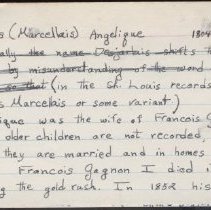 s (Marcellais) Angelique 1804
ally the name Desjarlais shifts t
by misunderstanding of the word
so that (in the St. Louis records
s Marcelais or some variant)
ique was the wife of Francois G
older children are not recorded,
they are married and in homes
Francois Gagnon I died i
ng the gold rush. In 1852 his